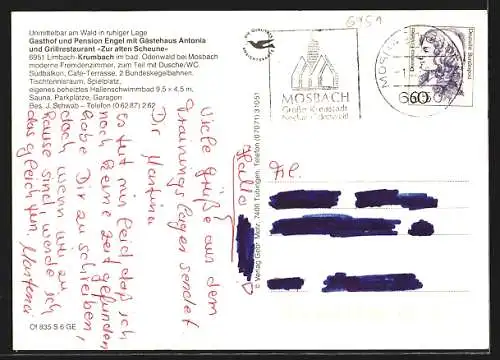 Unmittelbar am Wald in ruhiger Lage
Gasthof und Pension Engel mit Gästehaus Antonia
und Grillrestaurant »Zur alten Scheune«
6951 Limbach-Krumbach im bad. Odenwald bei Mosbach
moderne Fremdenzimmer, zum Teil mit Dusche/WC
Südbalkon, Café-Terrasse, 2 Bundeskegelbahnen.
Tischtennisraum, Spielplatz,
eigenes beheiztes Hallenschwimmbad 9,5 x 4,5 m,
Sauna, Parkplätze, Garagen
Bes. J. Schwab – Telefon (0 62 87) 2 62
Viele Grüße aus dem
Trainingslager sendet
Dir Martina
Es tut mir leid, daß ich
noch keine Zeit gefunden
habe Dir zu schreiben,
doch wenn wir zu
Hause sind, werde ich
das gleich tun. Martina
Of 835 S 6 GE
© Verlag Gebr. Metz, 7400 Tübingen, Telefon (0 70 71) 3 10 51
Hallo
6951
MOSBACH
Große Kreisstadt
Neckar-Odenwald
MOSBACH
6950
60
Deutsche Bundespost
Fr.